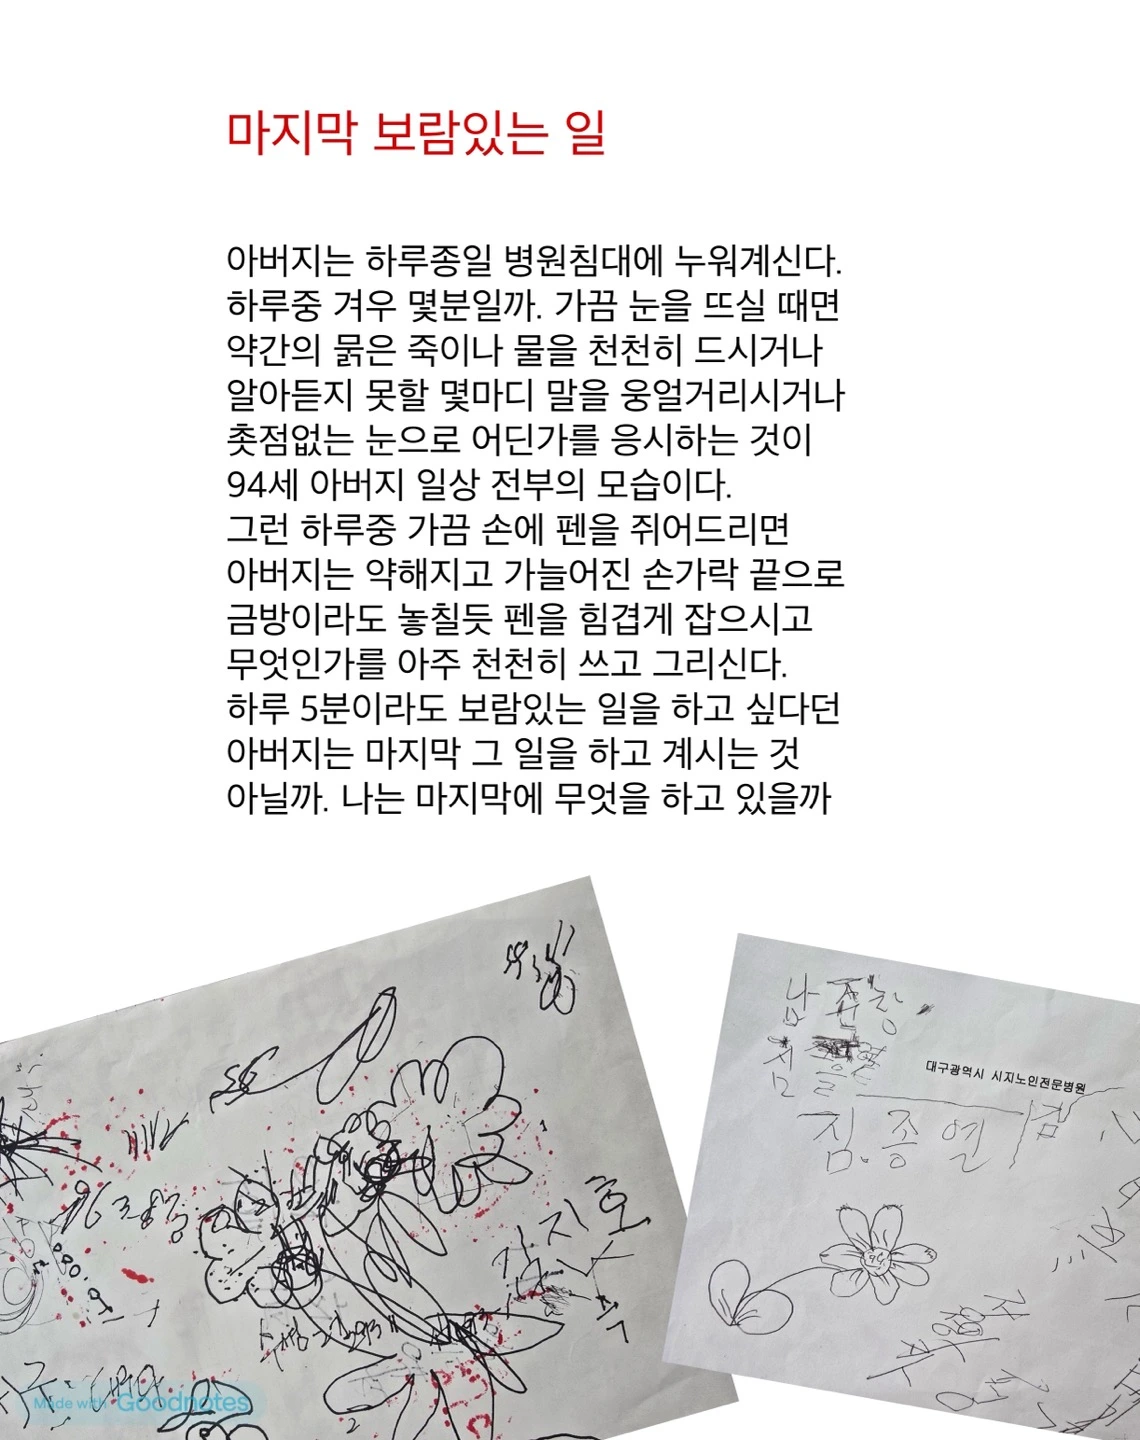 마지막 보람있는 일
아버지는 하루종일 병원침대에 누워계신다.
하루중 겨우 몇분일까. 가끔 눈을 뜨실 때면
약간의 묽은 죽이나 물을 천천히 드시거나
알아듣지 못할 몇마디 말을 웅얼거리시거나
촛점없는 눈으로 어딘가를 응시하는 것이
94세 아버지 일상 전부의 모습이다.
그런 하루중 가끔 손에 펜을 쥐어드리면
아버지는 약해지고 가늘어진 손가락 끝으로
금방이라도 놓칠듯 펜을 힘겹게 잡으시고
무엇인가를 아주 천천히 쓰고 그리신다.
하루 5분이라도 보람있는 일을 하고 싶다던
아버지는 마지막 그 일을 하고 계시는 것
아닐까. 나는 마지막에 무엇을 하고 있을까
대구광역시 시지노인전문병원
김종열
Made with Goodnotes